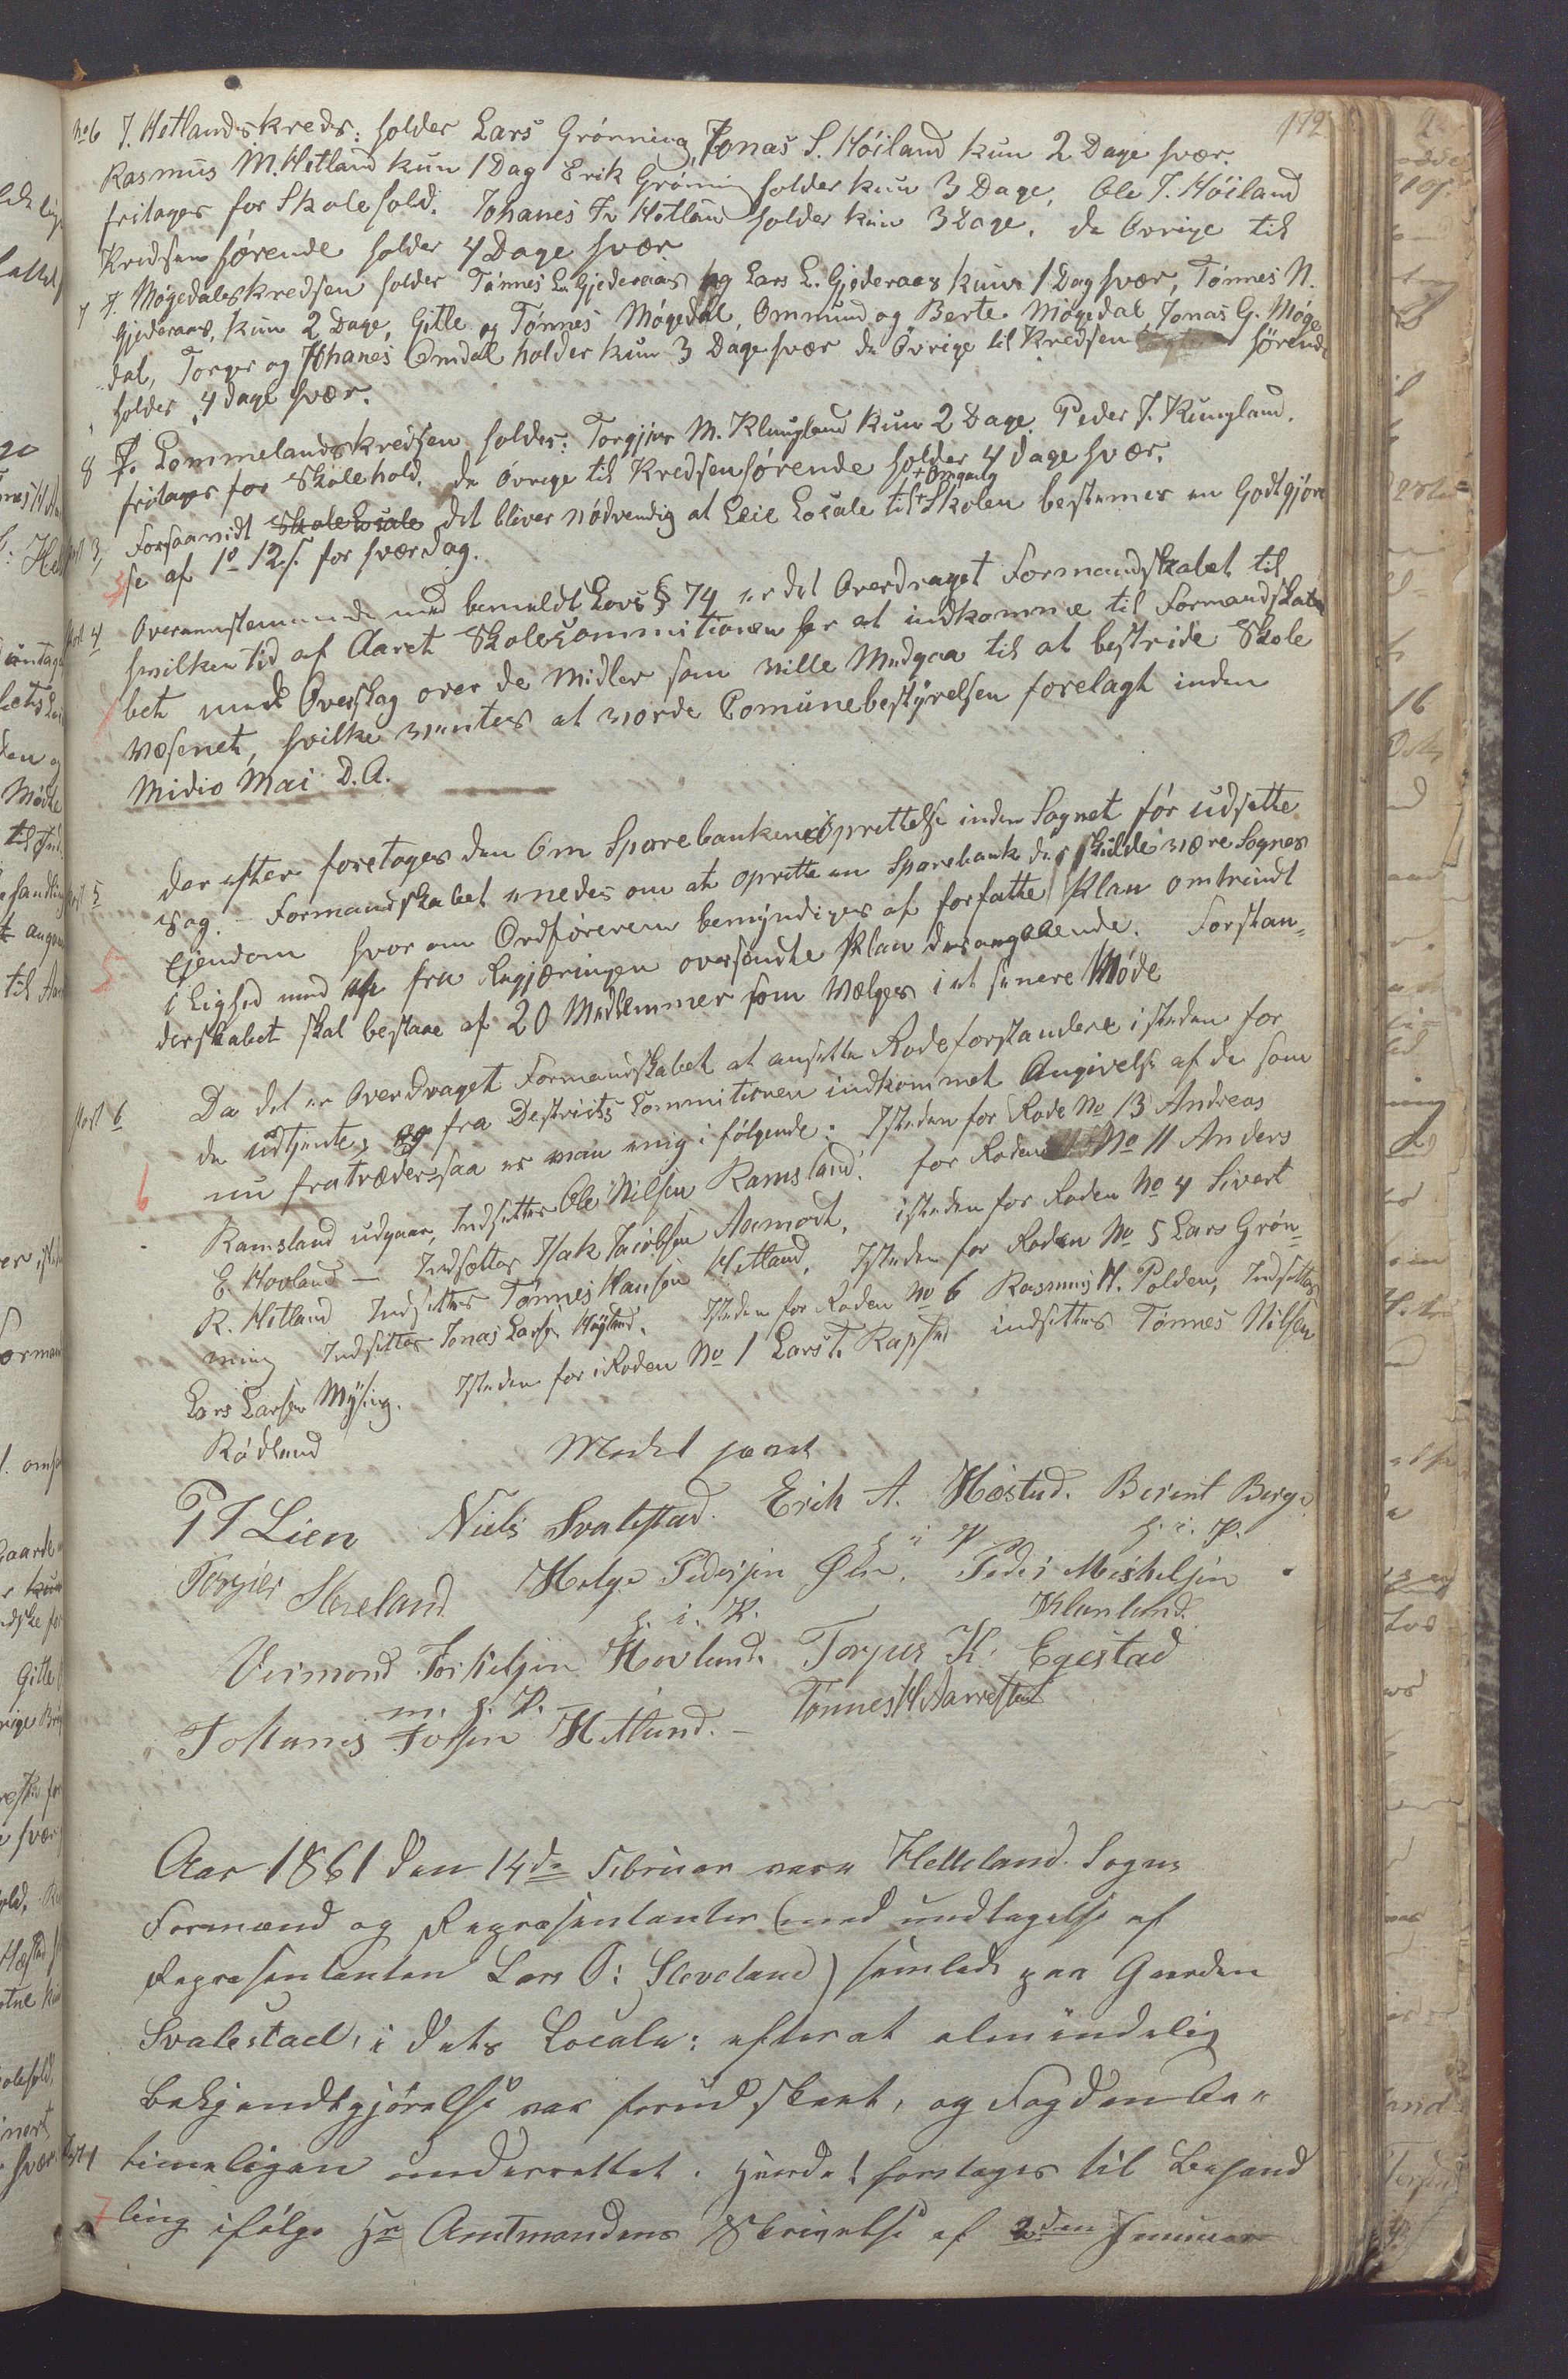 172
No 6 I. Hetlandskreds: holder Lars Grønning, Jonas S. Høiland kun 2 Dage hvær.
Rasmus M. Hetland kun 1 Dag Erik Grøning holder kun 3 Dage, Ole J. Høiland
fritages for Skolehold. Johanes Fr Hetland holder kun 3 Dage. de Øvrige til
Kredsen hørende holder 4 Dage hvær
7 I. Møgedalskredsen holder Tønnes L. Gjederaas og Lars L. Gjederaas kuns 1 Dag hvær, Tønnes N.
Gjederaas, kun 2 Dage, Gitle og Tønnes Møgedal, Ommund og Berte Møgedal Jonas G. Møge
dal, Torger og Johanes Omdal holder kun 3 Dage hvær de Øvrige til Kredsen hørende
holder 4 dage hvær.
8 I. Lommelandskredsen holder: Torgjus M. Klungland kun 2 Dage. Peder J. Kungland.
fritages for Skolehold. de øvrige til Kredsen hørende holder 4 dage hvær.
Post 3, Forsaavidt Skole Locale det bliver nødvendig at Leie Locale til + Omgang Skolen bestemes en Godtgjørel
3 se af 12 s. for hværdag.
Post 4 Overænstemmende med bemeldt Lovs § 74 er det Overdraget Formandskabet til
hvilken tid af Aaret Skolecommitionen har at indkomme til Formandskabet
bet med Overslag over de Midler som ville Medgaa til at bestride Skole
væsenet, hvilke ventes at vorde Comunebestyrelsen forelagt inden
Midio Mai D.A.
Der efter foretages den Om Sparebankens Oprettelse inden Sognet før udsatte
Post 5 Sag. Formandskabet enedes om at oprette en Sparebank der skulde være Sognes
Ejendom hvor om Ordføreren bemyndiges at forfatte Plan omtrindt
5 i Lighed med fra Regjæringen oversendte Plan desangaaende. Forstan=
derskabet skal bestaae af 20 Medlemmer som vælges i et senere Møde
Post 6 Da det er Overdraget Formandskabet at ansette Rodeforstandere isteden for
de udtjente, og fra Destricts Commitionen indkommet Angivelse af de som
6 nu fratræder saa er man enig i følgende: Isteden for Rode No 13 Andreas
Ramsland udgaar, Indsettes Ole Nilsen Ramsland. for Roden No 11 Anders
E. Hovland — Indsættes Isak Jacobsen Aamodt, isteden for Roden No 4 Sivert
R. Hetland Indsettes Tønnes Hansen Hetland, Isteden for Roden No 5 Lars Grøn=
ning Indsettes Jonas Larsen Høyland. Isteden for Roden No 6 Rasmus H. Polden, Indsettes
Lars Larsen Mysing. Isteden for Roden No 1 Lars T. Rapstad indsettes Tønnes Nilsen
Rødland
Mødet hævet
P J Lien Niels Svalestad. Erik A. Hæstad. Berent Berge
h. i. P. h. i. P.
Torgier Skeeland Helge Pedersen Øen. Peder Meskelsen
h. i. P. Klunland.
Vermond Torkelsen Hovland. Torjus K. Egestad
m. h. P.
Johanes Torsen Hetland. — Tønnes H Aarrestad
Aar 1861 den 14de Februar vare Helleland Sogns
Formænd og Repræsentanter (med undtagelse af
Repræsentanten Lars O: Sleveland) samlede paa Gaarden
Svalestad, i dets Locale: efter at almindelig
Bekjendtgjørelse var forud skeet, og Fogden be=
Post 1 timeligen underrettet. Hvorda! foretages til Behand
7 ling ifølge Hr Amtmandens Skrivelse af 2den Januar